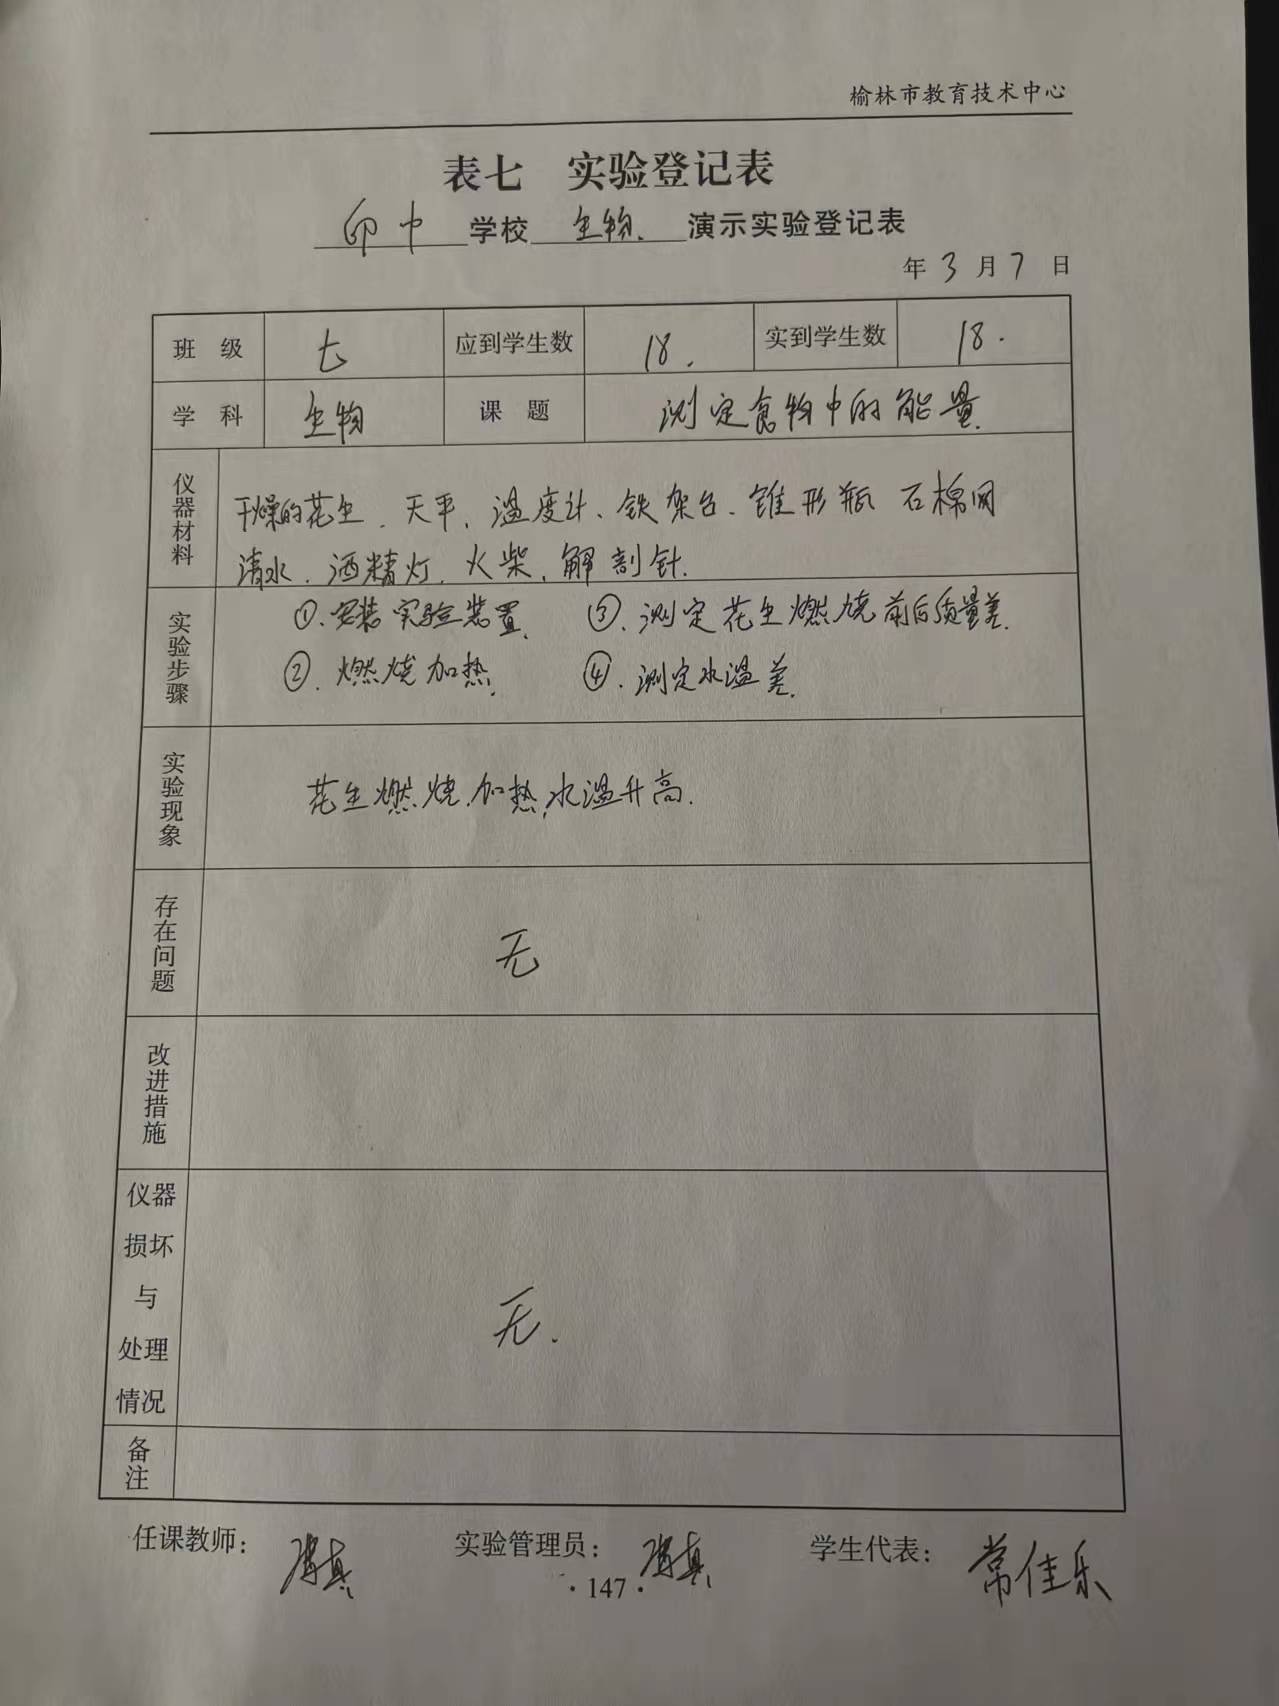 榆林市教育技术中心
表七 实验登记表
印中 学校 生物. 演示实验登记表
年 3 月 7 日
班级 七 应到学生数 18. 实到学生数 18.
学科 生物 课题 测定食物中的能量.
仪器材料 干燥的花生、天平、温度计、铁架台、锥形瓶 石棉网
清水、酒精灯、火柴、解剖针.
实验步骤 ①.安装实验装置. ③.测定花生燃烧前后质量差.
②.燃烧加热. ④.测定水温差.
实验现象 花生燃烧.加热,水温升高.
存在问题 无
改进措施
仪器损坏与处理情况 无.
备注
任课教师: 实验管理员: 学生代表: 常佳乐
·147·